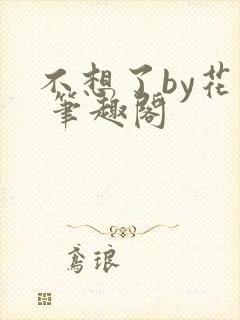 不想了by花
笔趣阁
鸢琅